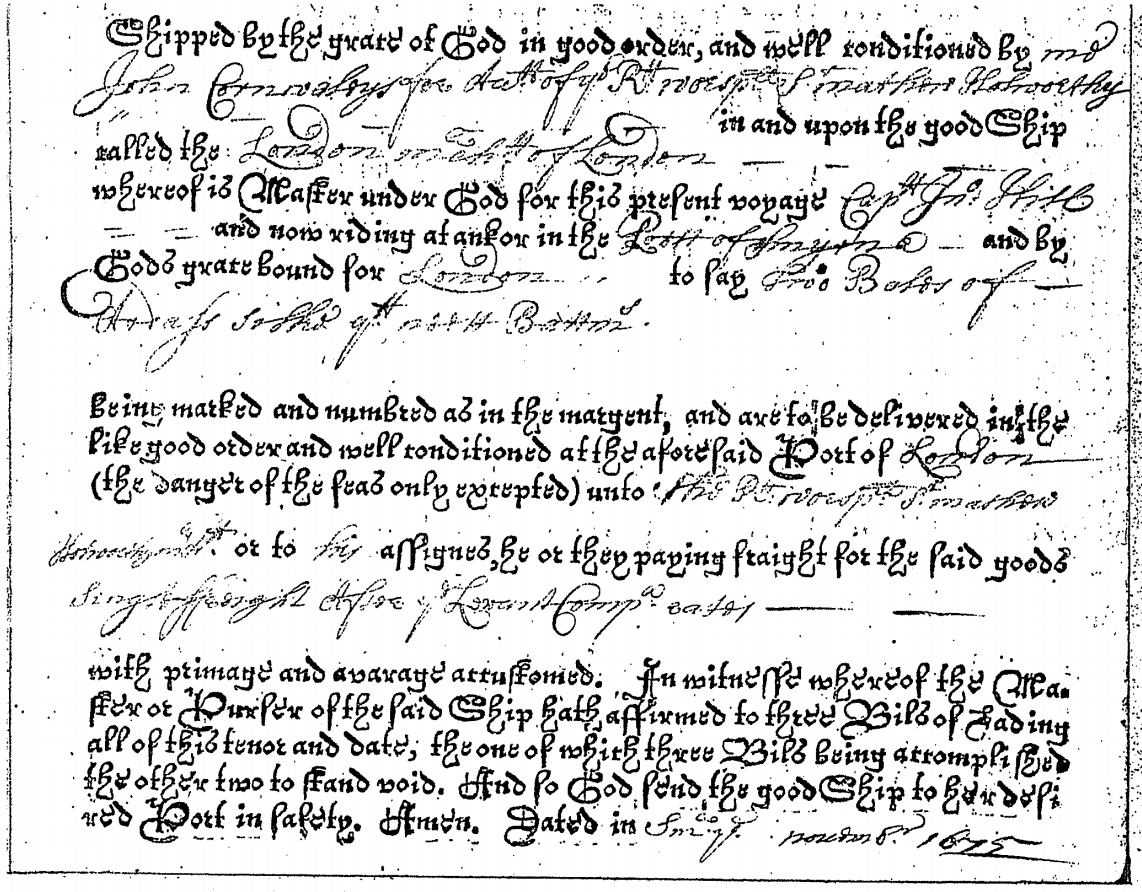 Shipped by the grace of God in good order, and well conditioned by me
John Cornwaleys for Acctt of ye Rtt worspll Sr mathew Holworthy
in and upon the good Ship
called the London mchtt of London
whereof is Master under God for this present voyage Captt Jno. Hill
and now riding at ankor in the Port of Smyrna and by
Gods grace bound for London to say Two Bales of
Ardass silke
being marked and numbred as in the margent, and are to be delivered in the
like good order and well conditioned at the aforesaid Port of London
(the danger of the seas only excepted) unto the Rtt worspll Sr mathew
Holworthy or to his assignes, he or they paying fraight for the said goods
Single ffreight after ye Levant Compa. rates
with primage and avarage accustomed. In witnesse whereof the Ma-
ster or Purser of the said Ship hath affirmed to three Bils of Lading
all of this tenor and date, the one of which three Bils being accomplished
the other two to stand void. And so God send the good Ship to her desi
red Port in safety. Amen. Dated in novembr. 1675